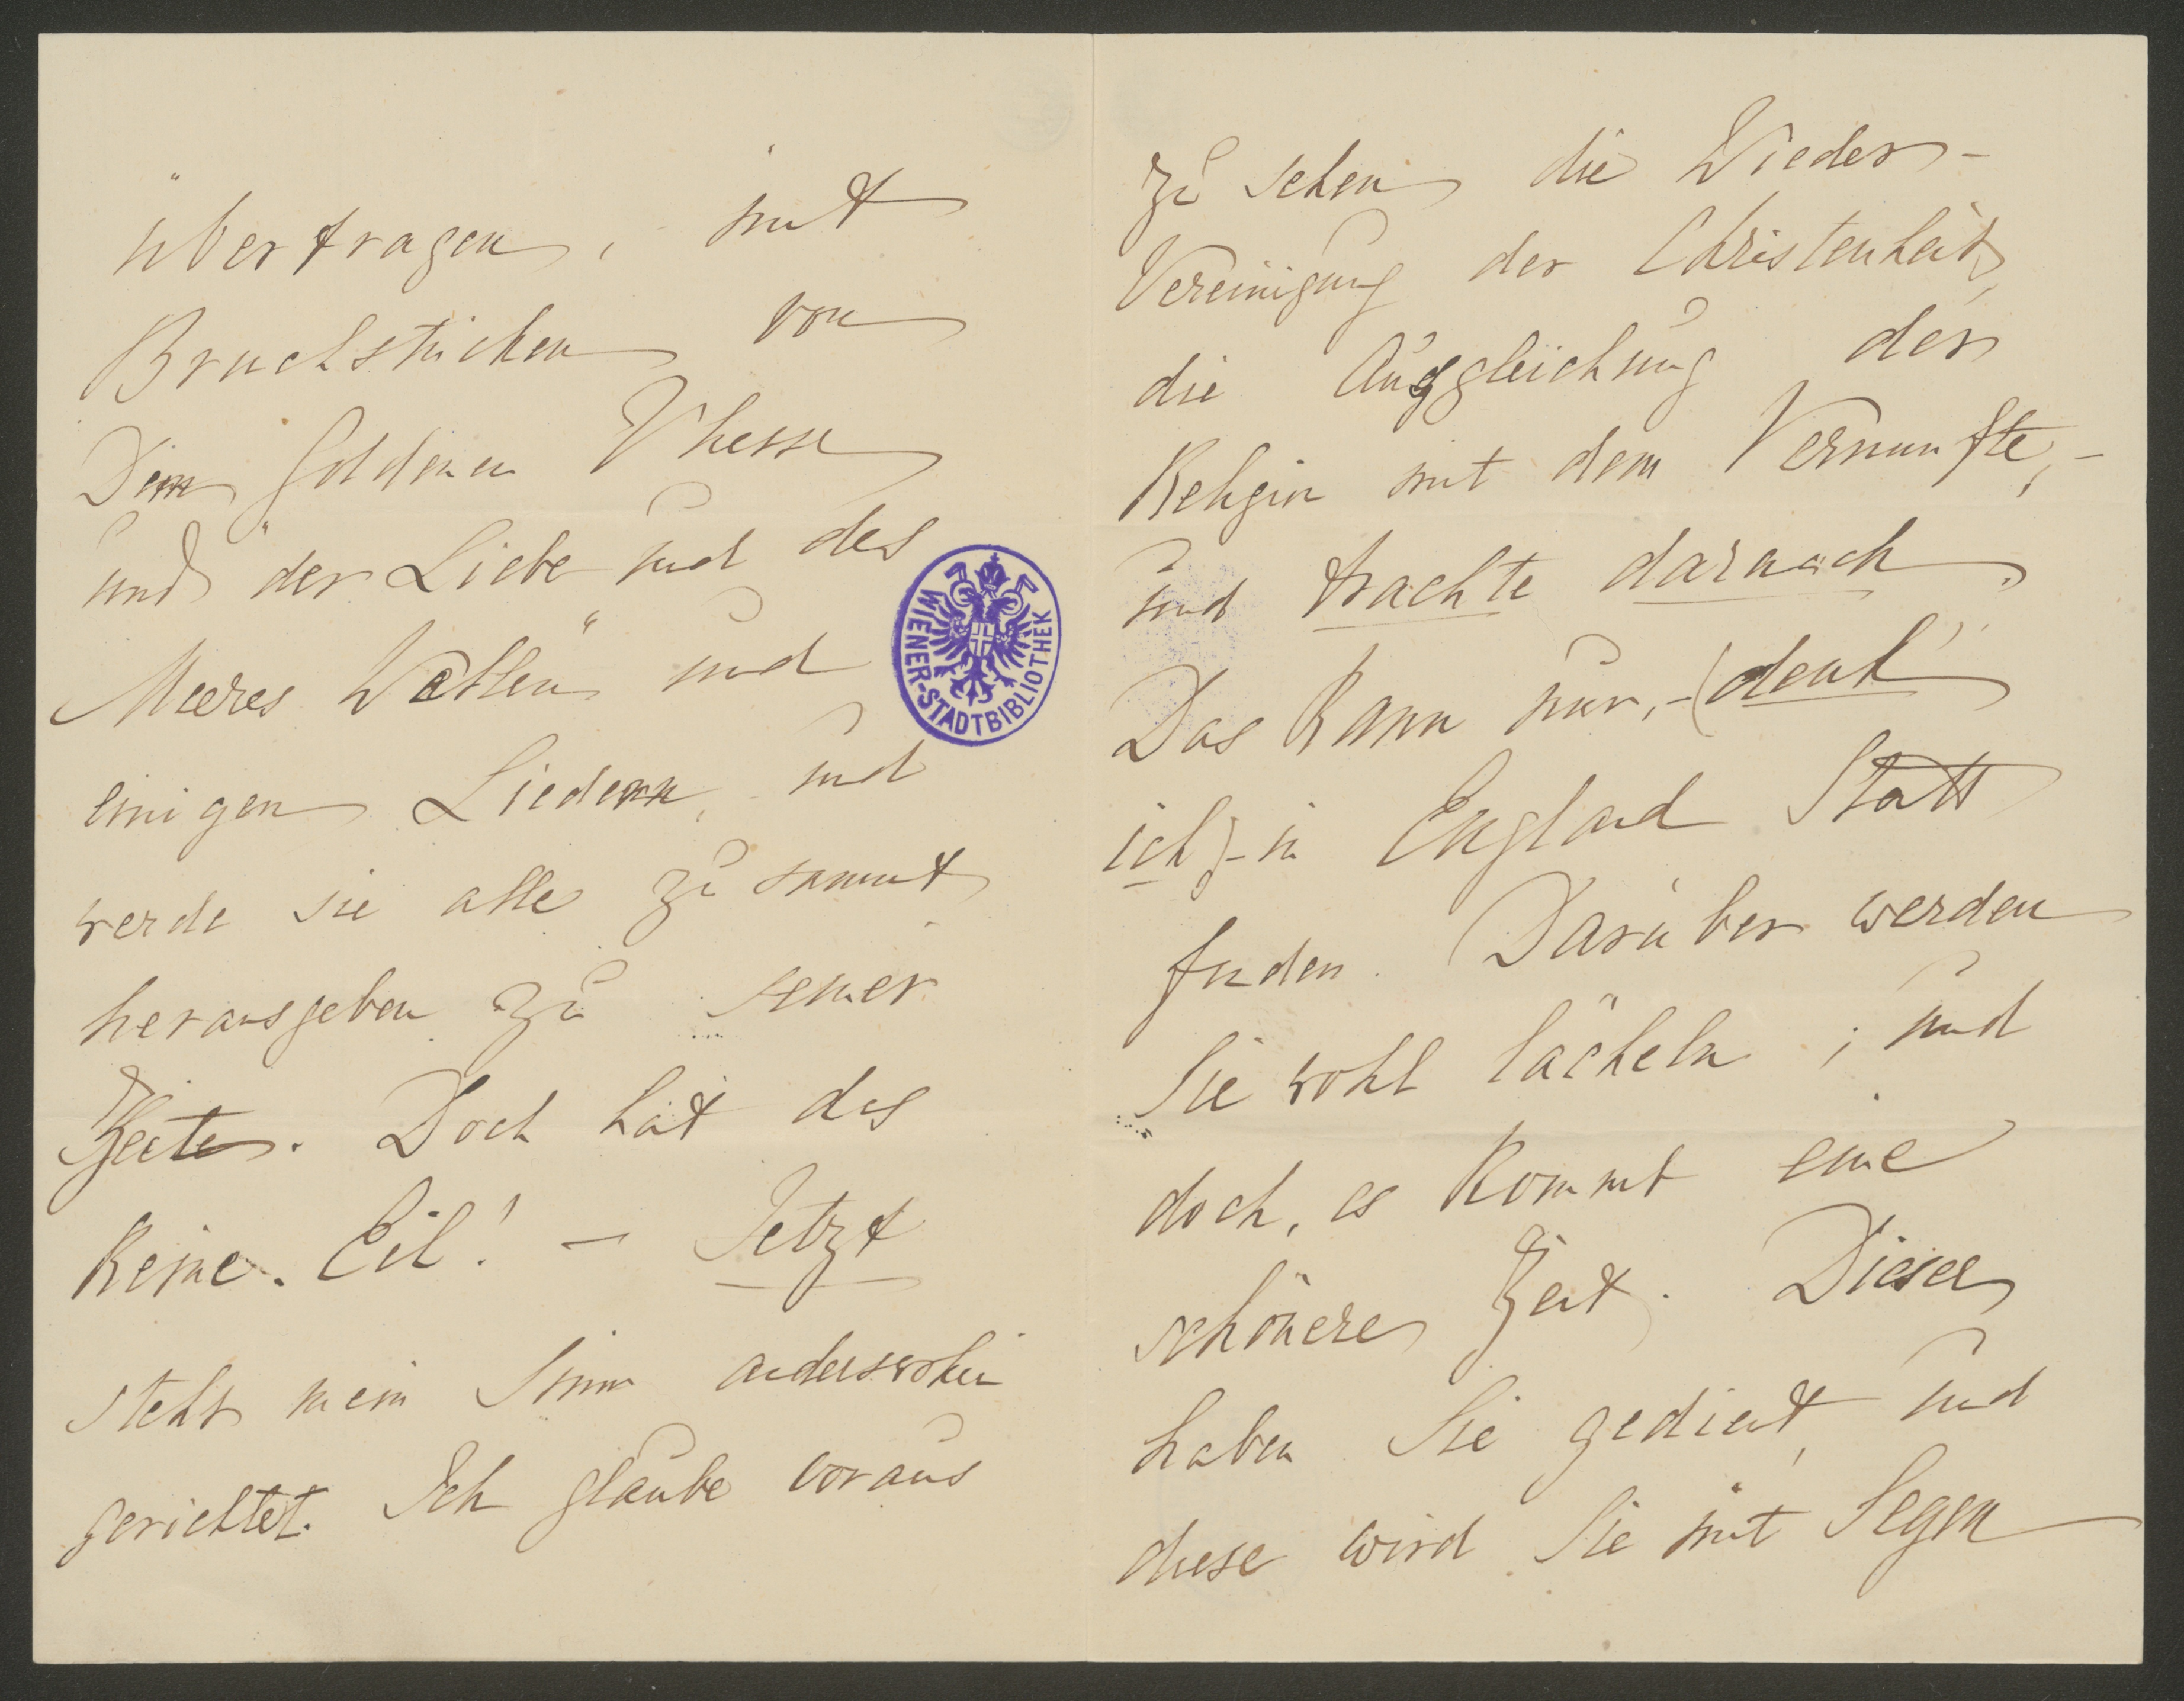 übertragen, mit
Bruchstücken von
Dem Goldenen Vhesse
und "der Liebe und des
Meeres Wellen" und
einigen Liedern, und
werde sie alle zu sammt
herausgeben zu seiner
Zeite. Doch hat das
keine Eil! - Jetzt
steht mein Sinn anderswohin
gerichtet. Ich glaube voraus
WIENER-STADTBIBLIOTHEK
zu sehen die Wieder-
Vereinigung der Christenheit,
die Ausgleichung der
Religion mit dem Vernunfte, -
und trachte darnach.
Das kann nur, - (denk'
ich) - in England Statt
finden. Darüber werden
Sie wohl lächeln; und
doch, es kommt eine
schönere Zeit. Dieser
haben Sie gedient, und
diese wird Sie mit Segen